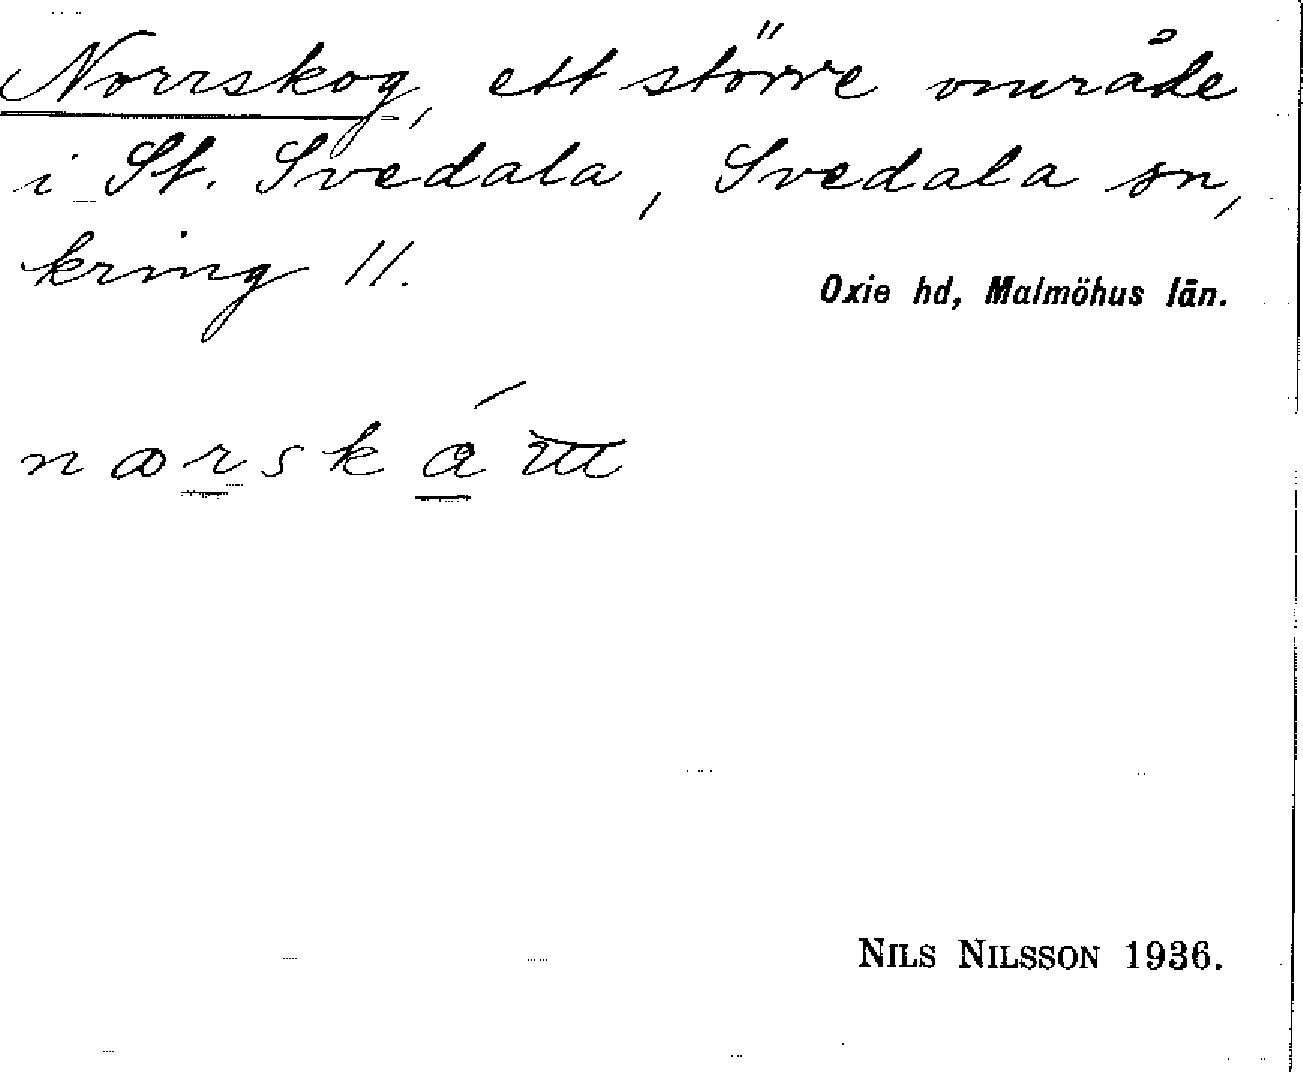 Norrskog, ett större område
i St. Svedala, Svedala sn,
kring 11.
Oxie hd, Malmöhus län.
NILS NILSSON 1936.